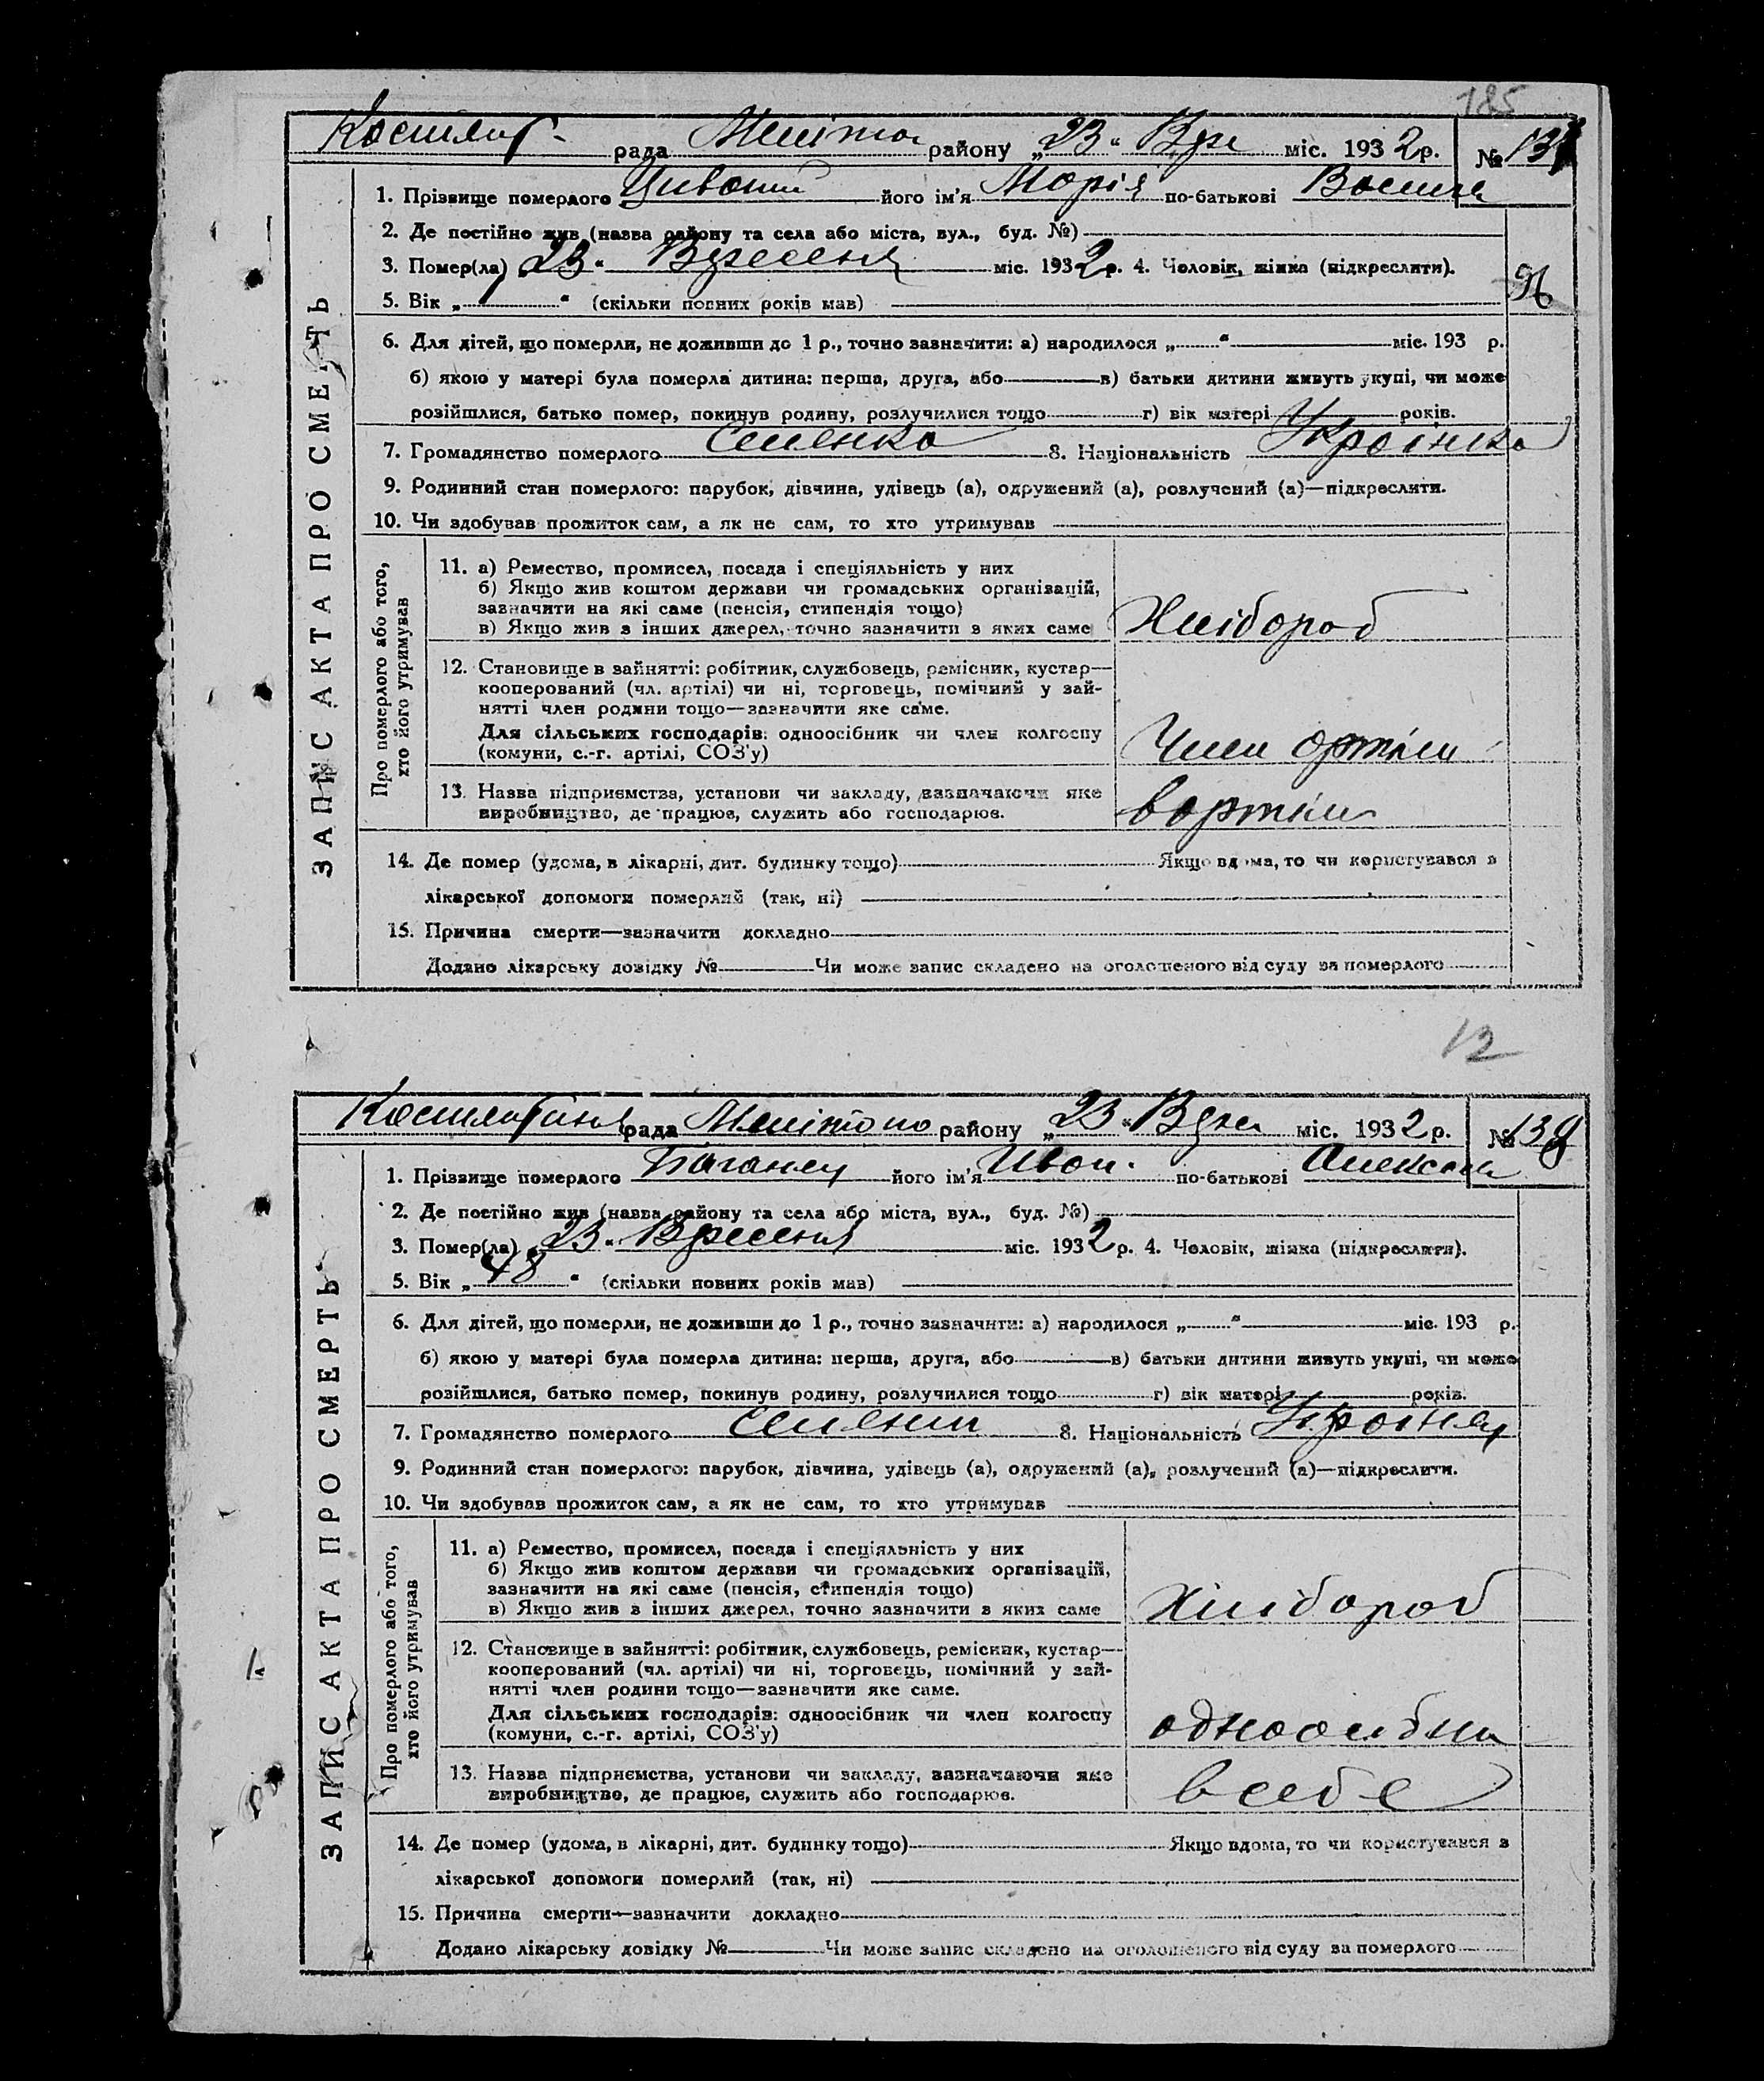 185
рада Меліто району „23“ Вере міс. 1932 р. №
1. Прізвище померлого його ім'я Марія по-батькові
2. Де постійно жив (назва району та села або міста, вул., буд. №)
3. Помер(ла) „23“ Вересня міс. 1932 р. 4. Чоловік, жінка (підкреслити).
5. Вік „1“ (скільки повних років мав)
6. Для дітей, що померли, не доживши до 1 р., точно зазначити: а) народилося „ “ міс. 193 р.
б) якою у матері була померла дитина: перша, друга, або в) батьки дитини живуть укупі, чи може
розійшлися, батько помер, покинув родину, розлучилися тощо г) вік матері років.
7. Громадянство померлого Селянка 8. Національність Українка
9. Родинний стан померлого: парубок, дівчина, удівець (а), одружений (а), розлучений (а)—підкреслити.
10. Чи здобував прожиток сам, а як не сам, то хто утримував
ЗАПИС АКТА ПРО СМЕРТЬ
Про померлого або того,
хто його утримував
11. а) Ремество, промисел, посада і спеціяльність у них
б) Якщо жив коштом держави чи громадських організацій,
зазначити на які саме (пенсія, стипендія тощо)
в) Якщо жив з інших джерел, точно зазначити з яких саме Хлібороб
12. Становище в зайнятті: робітник, службовець, ремісник, кустар—
кооперований (чл. артілі) чи ні, торговець, помічний у зай-
нятті член родини тощо—зазначити яке саме.
Для сільських господарів: одноосібник чи член колгоспу
(комуни, с.-г. артілі, СОЗ'у) Член артіли
13. Назва підприємства, установи чи закладу, зазначаючи яке
виробництво, де працює, служить або господарює. вартіли
14. Де помер (удома, в лікарні, дит. будинку тощо) Якщо вдома, то чи користувався з
лікарської допомоги померлий (так, ні)
15. Причина смерти—зазначити докладно
Додано лікарську довідку № Чи може запис складено на оголошеного від суду за померлого
12
рада Мелітопо району „23“ Вере міс. 1932 р. № 138
1. Прізвище померлого його ім'я Иван по-батькові
2. Де постійно жив (назва району та села або міста, вул., буд. №)
3. Помер(ла) „23“ Вересня міс. 1932 р. 4. Чоловік, жінка (підкреслити).
5. Вік „48“ (скільки повних років мав)
6. Для дітей, що померли, не доживши до 1 р., точно зазначити: а) народилося „ “ міс. 193 р.
б) якою у матері була померла дитина: перша, друга, або в) батьки дитини живуть укупі, чи може
розійшлися, батько помер, покинув родину, розлучилися тощо г) вік матері років.
7. Громадянство померлого Селянин 8. Національність Українец
9. Родинний стан померлого: парубок, дівчина, удівець (а), одружений (а), розлучений (а)—підкреслити.
10. Чи здобував прожиток сам, а як не сам, то хто утримував
ЗАПИС АКТА ПРО СМЕРТЬ
Про померлого або того,
хто його утримував
11. а) Ремество, промисел, посада і спеціяльність у них
б) Якщо жив коштом держави чи громадських організацій,
зазначити на які саме (пенсія, стипендія тощо)
в) Якщо жив з інших джерел, точно зазначити з яких саме Хлібороб
12. Становище в зайнятті: робітник, службовець, ремісник, кустар—
кооперований (чл. артілі) чи ні, торговець, помічний у зай-
нятті член родини тощо—зазначити яке саме.
Для сільських господарів: одноосібник чи член колгоспу
(комуни, с.-г. артілі, СОЗ'у)
13. Назва підприємства, установи чи закладу, зазначаючи яке
виробництво, де працює, служить або господарює. в себе
14. Де помер (удома, в лікарні, дит. будинку тощо) Якщо вдома, то чи користувався з
лікарської допомоги померлий (так, ні)
15. Причина смерти—зазначити докладно
Додано лікарську довідку № Чи може запис складено на оголошеного від суду за померлого